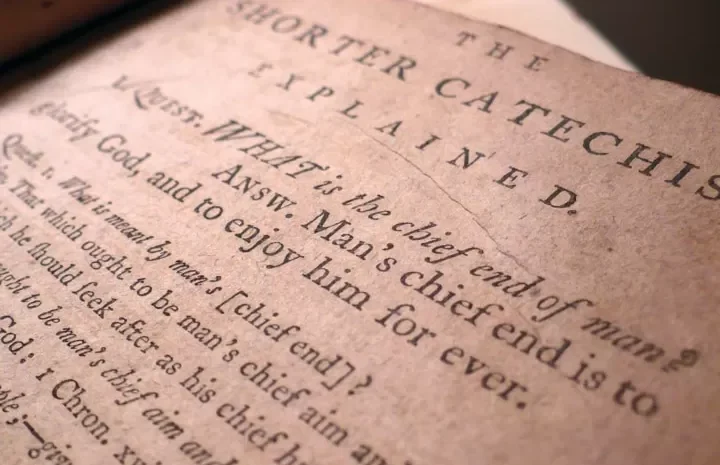 THE
SHORTER CATECHIS
EXPLAINED.
1. QUEST. WHAT is the chief end of man?
ANSW. Man's chief end is to
glorify God, and to enjoy him for ever.
Quest. 1. What is meant by man's [chief end]?
That which ought to be man's chief aim an
ch he ſhould ſeek after as his chief h
ought to be man's chief aim and
God: 1 Chron. xvi